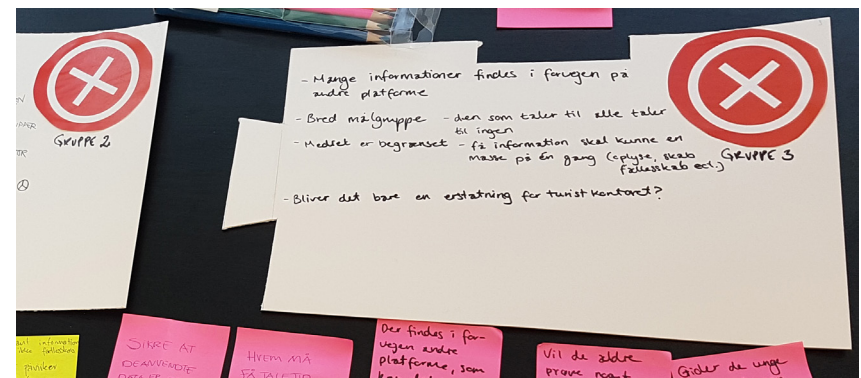 GRUPPE 2
- Mange informationer findes i forvegen på
andre platforme
- Bred målgruppe - den som taler til alle taler
til ingen
- Mediet er begrænset - få information skal kunne en
masse på én gang (oplyse, skab
fællesskab ect.)
GRUPPE 3
- Bliver det bare en erstatning for turistkontoret?
information
SIKRE AT
DE ANVENDTE
HVEM MÅ
FÅ TALETID
Der findes i for-
vegen andre
platforme, som
Vil de ældre
prøve noget
Gider de unge